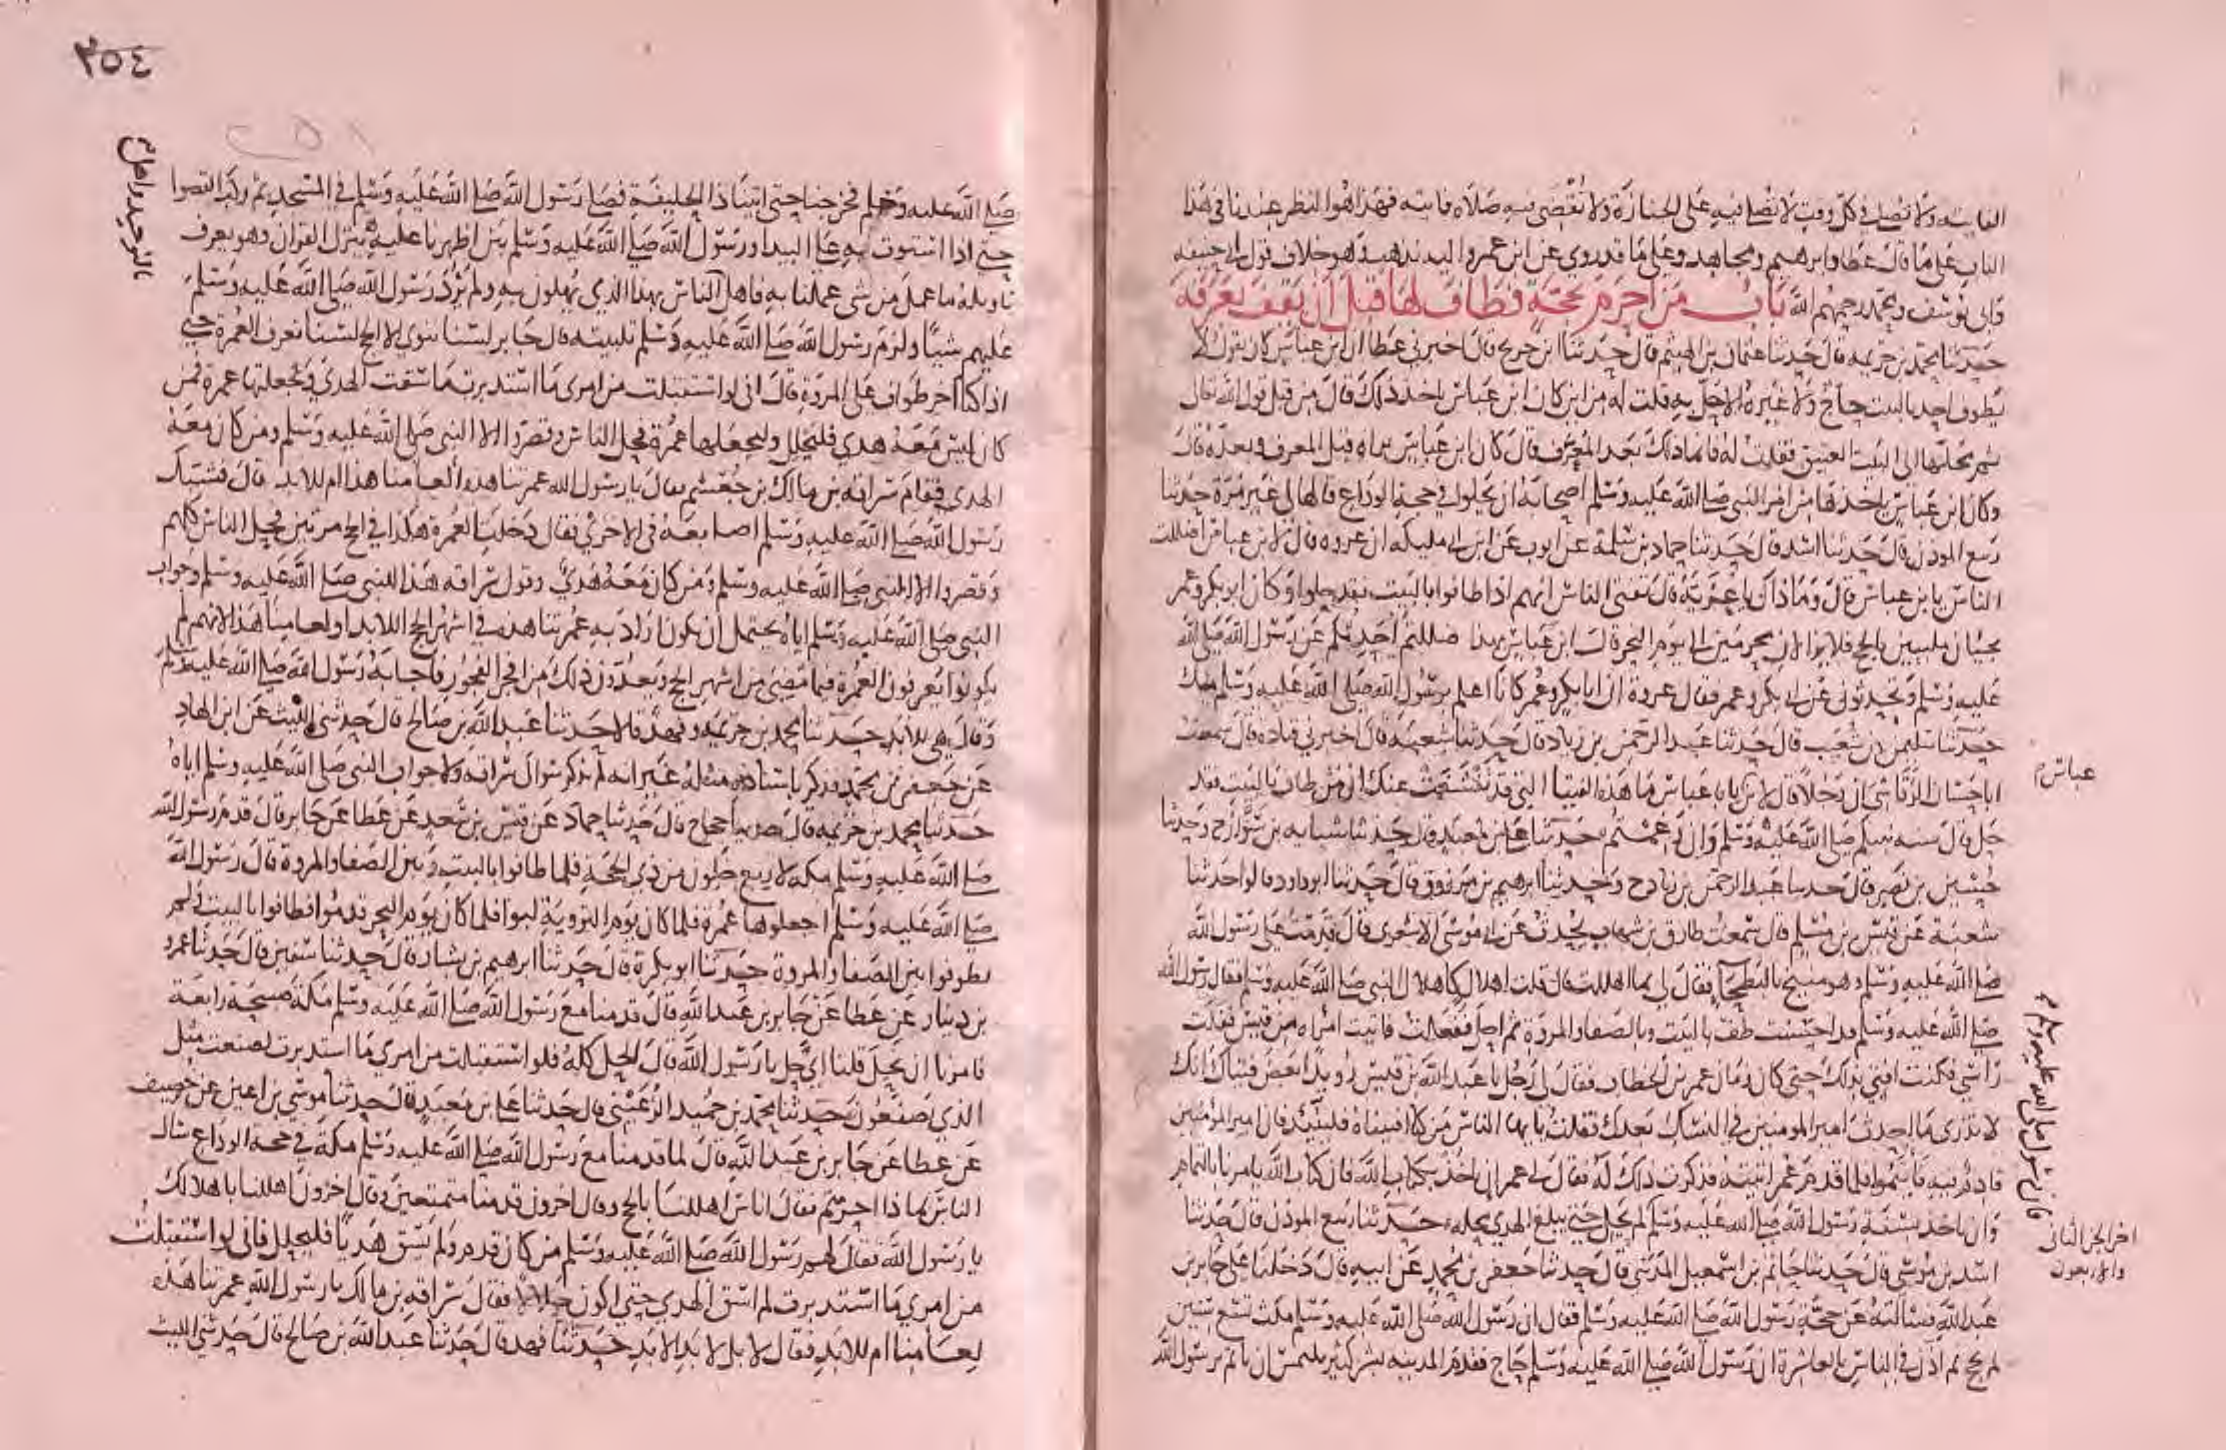 الفايته ولا تصلى في كل وقت لا تصلى فيه على الجنازة ولا تقضى فيه صلاه فايته فهذا هو النظر عندنا في هذا
الباب على ما قال عطا وابرهيم ومجاهد وعلى ما قد روى عن ابن عمر واليه نذهب وهو خلاف قول ابي حنيفه
وابى يوسف ومحمد رحمهم الله باب من احرم بحجة فطاف لها قبل ان يقف بعرفة
حدثنا محمد بن خزيمه قال حدثنا عثمان بن الهيثم قال حدثنا ابن جريج قال اخبرني عطا ان ابن عباس كان يقول لا
يطوف احد بالبيت حاج ولا غيره الا حل به قلت له من اين كان ابن عباس ياخذ ذلك قال من قبل قول الله تعالى
ثم محلها الى البيت العتيق فقلت له فانما ذلك بعد المعرف قال كان ابن عباس يراه قبل المعرف وبعده قال
وكان ابن عباس ياخذها من امر النبى صلى الله عليه وسلم اصحابه ان يحلوا في حجة الوداع قالها لى غير مرة حدثنا
ربيع المودن قال حدثنا اسد قال حدثنا حماد بن سلمة عن ايوب عن ابن ابي مليكه ان عروه قال لابن عباس اضللت
الناس يا بن عباس قال وما ذاك يا عرية قال تفتى الناس انهم اذا طافوا بالبيت فقد حلوا وكان ابو بكر وعمر
يجيان ملبيين بالحج فلا يزالان محرمين الى يوم النحر قال ابن عباس بهذا ضللتم احدثكم عن رسول الله صلى الله
عليه وسلم وتحدثونى عن ابي بكر وعمر فقال عروة ان ابا بكر وعمر كانا اعلم برسول الله صلى الله عليه وسلم منك
حدثنا سليمن بن شعيب قال حدثنا عبد الرحمن بن زياد قال حدثنا شعبه قال اخبرنى قتاده قال سمعت
ابا حسان الرقاشى ان رجلا قال لابن عباس يا با عباس ما هذه الفتيا التى قد تفشغت عنك ان من طاف بالبيت فقد
عباس
حل قال سنه نبيكم صلى الله عليه وسلم وان رغمتم حدثنا على بن معبد قال حدثنا شبابه بن سوار ح وحدثنا
حسين بن نصر قال حدثنا عبد الرحمن بن زياد ح وحدثنا ابرهيم بن مرزوق قال حدثنا ابو داود قالوا حدثنا
شعبة عن قيس بن مسلم قال سمعت طارق بن شهاب يحدث عن ابي موسى الاشعرى قال قدمت على رسول الله
صلى الله عليه وسلم وهو منيخ بالبطحا فقال لى بما اهللت قال قلت اهلال كاهلال النبى صلى الله عليه وسلم فقال رسول الله
صلى الله عليه وسلم قد احسنت طف بالبيت وبالصفا والمروة ثم احل ففعلت فاتيت امراه من قيس ففلت
راسي فكنت افتى بذلك حتى كان زمان عمر بن الخطاب فقال لى رجل يا عبد الله بن قيس رويدا بعض فتياك انك
لا تدرى ما احدث امير المومنين في النسك بعدك فقلت يا يها الناس من كنا افتيناه فليتئد فان امير المؤمنين
قادم به فاتموا فلما قدم عمر اتيته فذكرت ذلك له فقال لى عمر ان ناخذ بكتاب الله فان كتاب الله يامرنا بالتمام
وان ناخذ بسنة رسول الله صلى الله عليه وسلم لم يحل حتى يبلغ الهدى محله حدثنا ربيع المودن قال حدثنا
فان رسول الله صلى الله عليه وسلم
اخر الجز الثانى
والاربعون
اسد بن موسى قال حدثنا حاتم بن اسمعيل المدنى قال حدثنا جعفر بن محمد عن ابيه قال دخلنا على جابر بن
عبد الله فسالته عن حجة رسول الله صلى الله عليه وسلم فقال ان رسول الله صلى الله عليه وسلم مكث تسع سنين
لم يحج ثم اذن في الناس بالعاشرة ان رسول الله صلى الله عليه وسلم حاج فقدم المدينه بشر كثير يلتمس ان ياتم برسول الله
٢٥٤
صلى الله عليه وسلم فخرجنا حتى اتينا ذا الحليفة فصلى رسول الله صلى الله عليه وسلم في المسجد ثم ركب القصوا
بالتوحيد واهل
حتى اذا استوت به على البيدا ورسول الله صلى الله عليه وسلم بين اظهرنا عليه ينزل القران وهو يعرف
تاويله ما عمل من شى عملنا به فاهل الناس بهذا الذي يهلون به ولم يرد رسول الله صلى الله عليه وسلم
عليهم شيئا ولزم رسول الله صلى الله عليه وسلم تلبيته قال جابر لسنا ننوى الا الحج لسنا نعرف العمرة حتى
اذا كنا اخر طواف على المروة قال انى لو استقبلت من امرى ما استدبرت ما سقت الهدى ولجعلتها عمرة فمن
كان ليس معه هدى فليحلل وليجعلها عمرة فحل الناس وقصروا الا النبى صلى الله عليه وسلم ومن كان معه
الهدى فقام سراقه بن مالك بن جعشم فقال يا رسول الله عمرتنا هذه لعامنا هذا ام للابد قال فشبك
رسول الله صلى الله عليه وسلم اصابعه في الاخرى فقال دخلت العمرة هكذا في الحج مرتين فحل الناس كلهم
وقصروا الا النبى صلى الله عليه وسلم ومن كان معه هدى وقول سراقه هذا للنبى صلى الله عليه وسلم وجواب
النبى صلى الله عليه وسلم اياه يحتمل ان يكون اراد به عمرتنا هذه في اشهر الحج للابد او لعامنا هذا لانهم لم
يكونوا يعرفون العمرة فيما مضى من اشهر الحج ويعدون ذلك من افجر الفجور فاجابه رسول الله صلى الله عليه وسلم
وقال هى للابد حدثنا محمد بن خزيمه وفهد قالا حدثنا عبد الله بن صالح قال حدثنى الليث عن ابن الهاد
عن جعفر بن محمد فذكر باسناده مثله غير انه لم يذكر سوال سراقه ولا جواب النبى صلى الله عليه وسلم اياه
حدثنا محمد بن خزيمه قال حدثنا حجاج قال حدثنا حماد عن قيس بن سعد عن عطا عن جابر قال قدم رسول الله
صلى الله عليه وسلم مكه لاربع خلون من ذى الحجة فلما طافوا بالبيت وبين الصفا والمروة قال رسول الله
صلى الله عليه وسلم اجعلوها عمرة فلما كان يوم التروية لبوا فلما كان يوم النحر قدموا فطافوا بالبيت ولم
يطوفوا بين الصفا والمروة حدثنا ابو بكرة قال حدثنا ابرهيم بن بشار قال حدثنا سفين قال حدثنا عمرو
بن دينار عن عطا عن جابر بن عبد الله قال قدمنا مع رسول الله صلى الله عليه وسلم مكة صبيحة رابعة
فامرنا ان نحل قلنا اى حل يا رسول الله قال الحل كله فلو استقبلت من امرى ما استدبرت لصنعت مثل
الذي تصنعون حدثنا محمد بن حميد الرعينى قال حدثنا على بن معبد قال حدثنا موسى بن اعين عن خصيف
عن عطا عن جابر بن عبد الله قال لما قدمنا مع رسول الله صلى الله عليه وسلم مكة في حجة الوداع سال
الناس بما ذا احرمتم فقال اناس اهللنا بالحج وقال اخرون قدمنا متمتعين وقال اخرون اهللنا باهلالك
يا رسول الله فقال لهم رسول الله صلى الله عليه وسلم من كان قدم ولم يسق هديا فليحلل فانى لو استقبلت
من امرى ما استدبرت لم اسق الهدى حتى اكون حلالا فقال سراقه بن مالك يا رسول الله عمرتنا هذه
لعامنا ام للابد فقال لا بل لابد الابد حدثنا فهد قال حدثنا عبد الله بن صالح قال حدثنى الليث